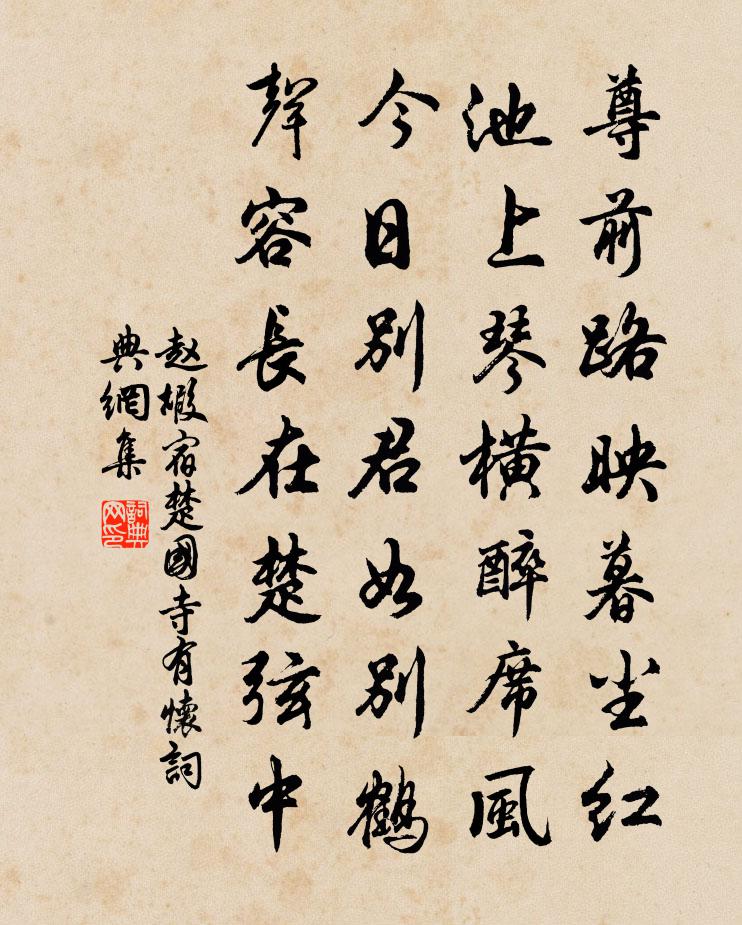 尊前路映暮尘红
池上琴横醉席風
今日别君如别鹤
聲容長在楚弦中
赵嘏宿楚國寺有懷詞
典網集
詞典
网印